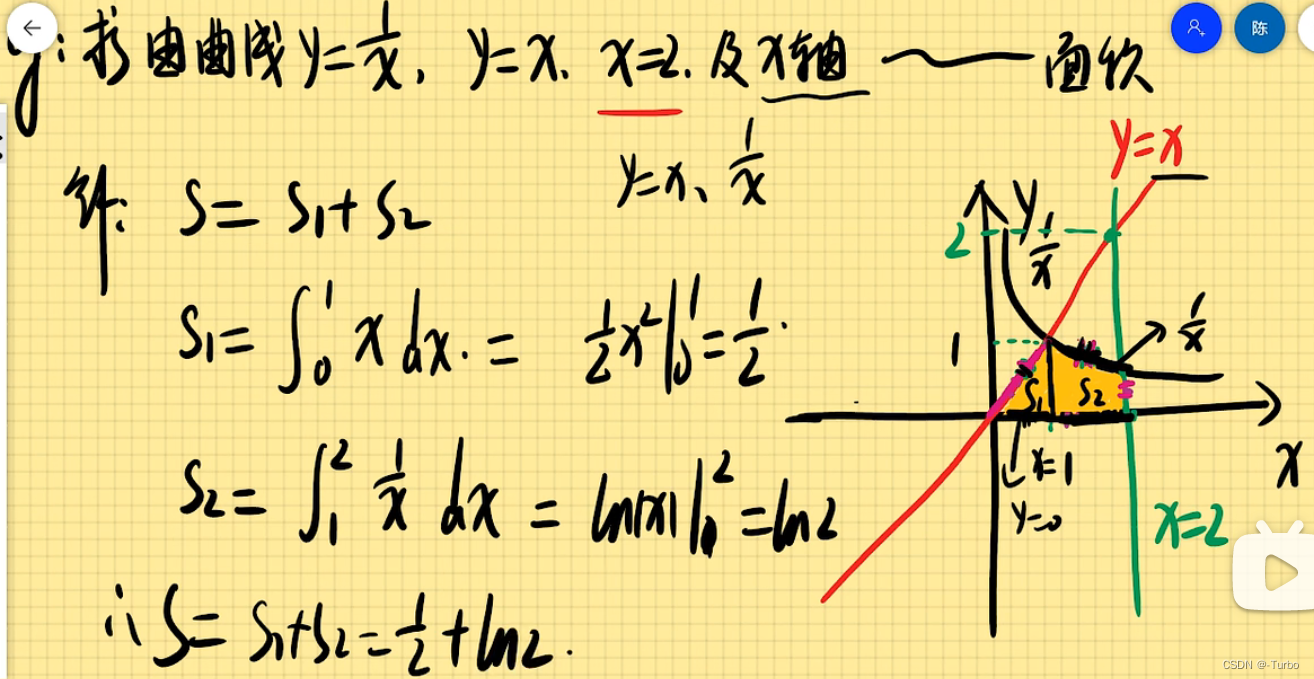 eg: 求由曲线 y=1/x、 y=x、 x=2、及 x轴 —— 面积
y=x、1/x
解: S = S1 + S2
S1 = ∫_0^1 x dx. = 1/2 x^2 |_0^1 = 1/2.
S2 = ∫_1^2 1/x dx = ln|x| |_0^2 = ln2
∴ S = S1+S2 = 1/2 + ln2.
y=x
y
2
1/x
1/x
1
S1
S2
x=1
x
y=0
x=2
陈
CSDN @-Turbo